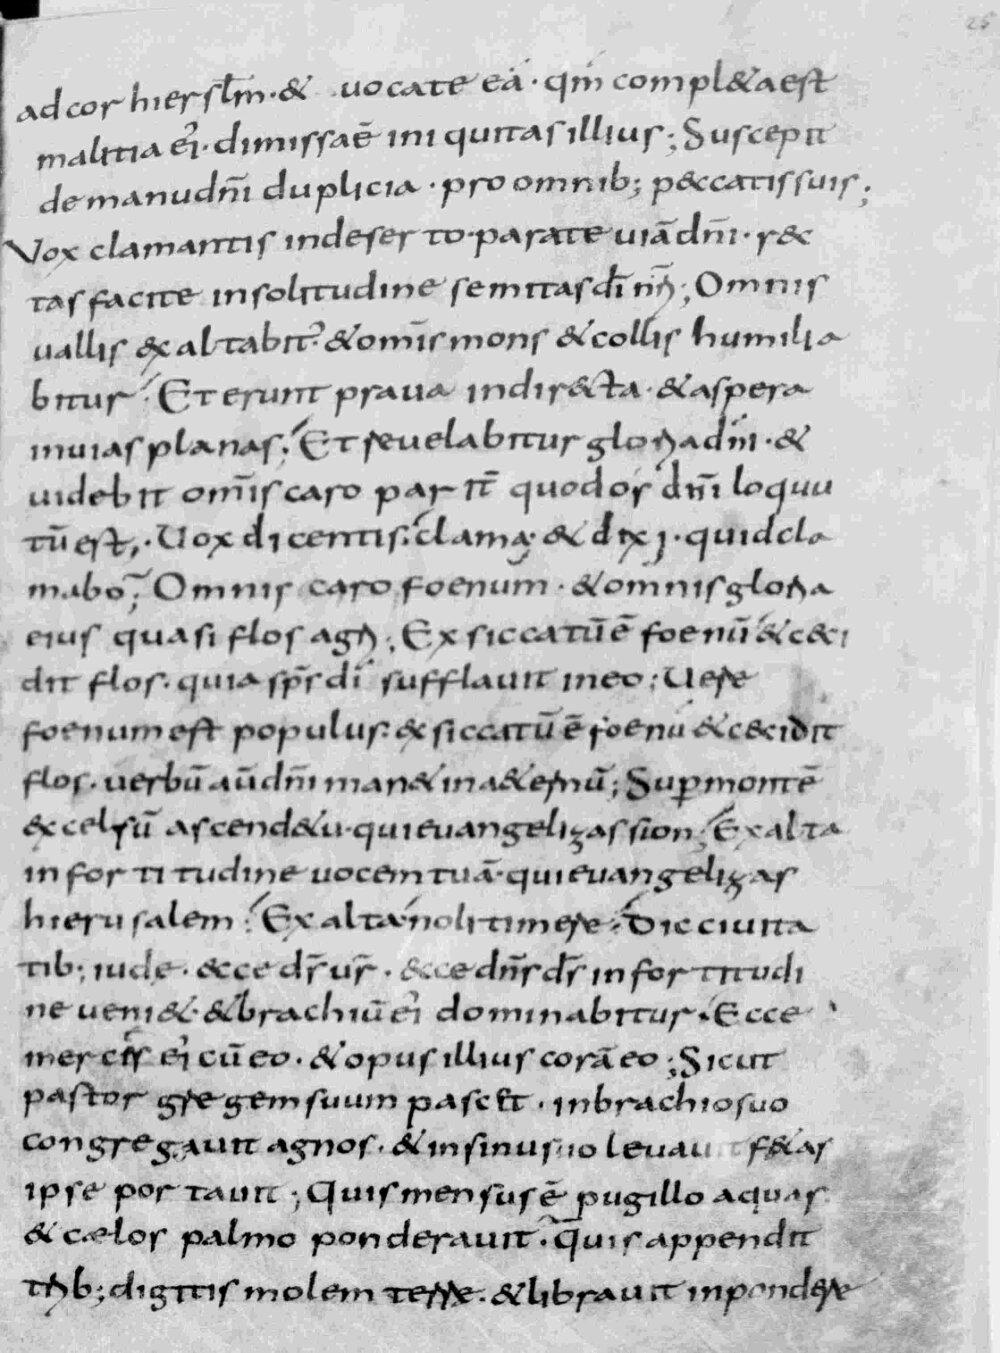 26
ad cor hierſl̅m · & uocate eā · qm̅ compl&a eſt
malitia ei᾽ · dimiſſa ē iniquitas illius ; Suscepit
de manu dn̅i duplicia · pro omnib; p&ccatis suis ;
Vox clamantis in deserto · parate uiā dn̅i · r&c
tas facite in solitudine semitas dī nr̅i ; Omnis
uallis &xaltabit᾽ · & omīs mons & collis humilia
bitur · Et erunt praua in dir&cta · & aspera
in uias planas ; Et reuelabitur gloria dn̅i · &
uidebit om̅is caro parit̅ quod os dn̅i loquu
tū eſt ; Vox dicentis · clama ; & dixi · quid cla
mabo ; Omnis caro foenum · & omnis gloria
eius quasi flos agri ; Exsiccatū ē foenū & c&ci
dit flos · quia sps̅ dī sufflauit in eo ; Uere
foenum eſt populus · &xsiccatū ē foenū & c&cidit
flos · uerbū aū dn̅i man& in a&ernū ; Sup̱ montē
&xcelsū ascend& u · qui euangelizas sion ; Exalta
in fortitudine uocem tuā · qui euangelizas
hierusalem ; Exalta noli timere · Dic ciuita
tib; iude · &cce ds̅ ur̅ · &cce dn̅s ds̅ in fortitudi
ne ueni& · & brachiū ei᾽ dominabitur · Ecce
merces ei᾽ cū eo · & opus illius corā eo ; Sicut
pastor gregem suum pascet · in brachio suo
congregauit agnos · & in sinu suo leuauit f&as
ipse portauit ; Quis mensus ē pugillo aquas
& cælos palmo ponderauit · Quis appendit
trib; digitis molem terre · & librauit in pondere